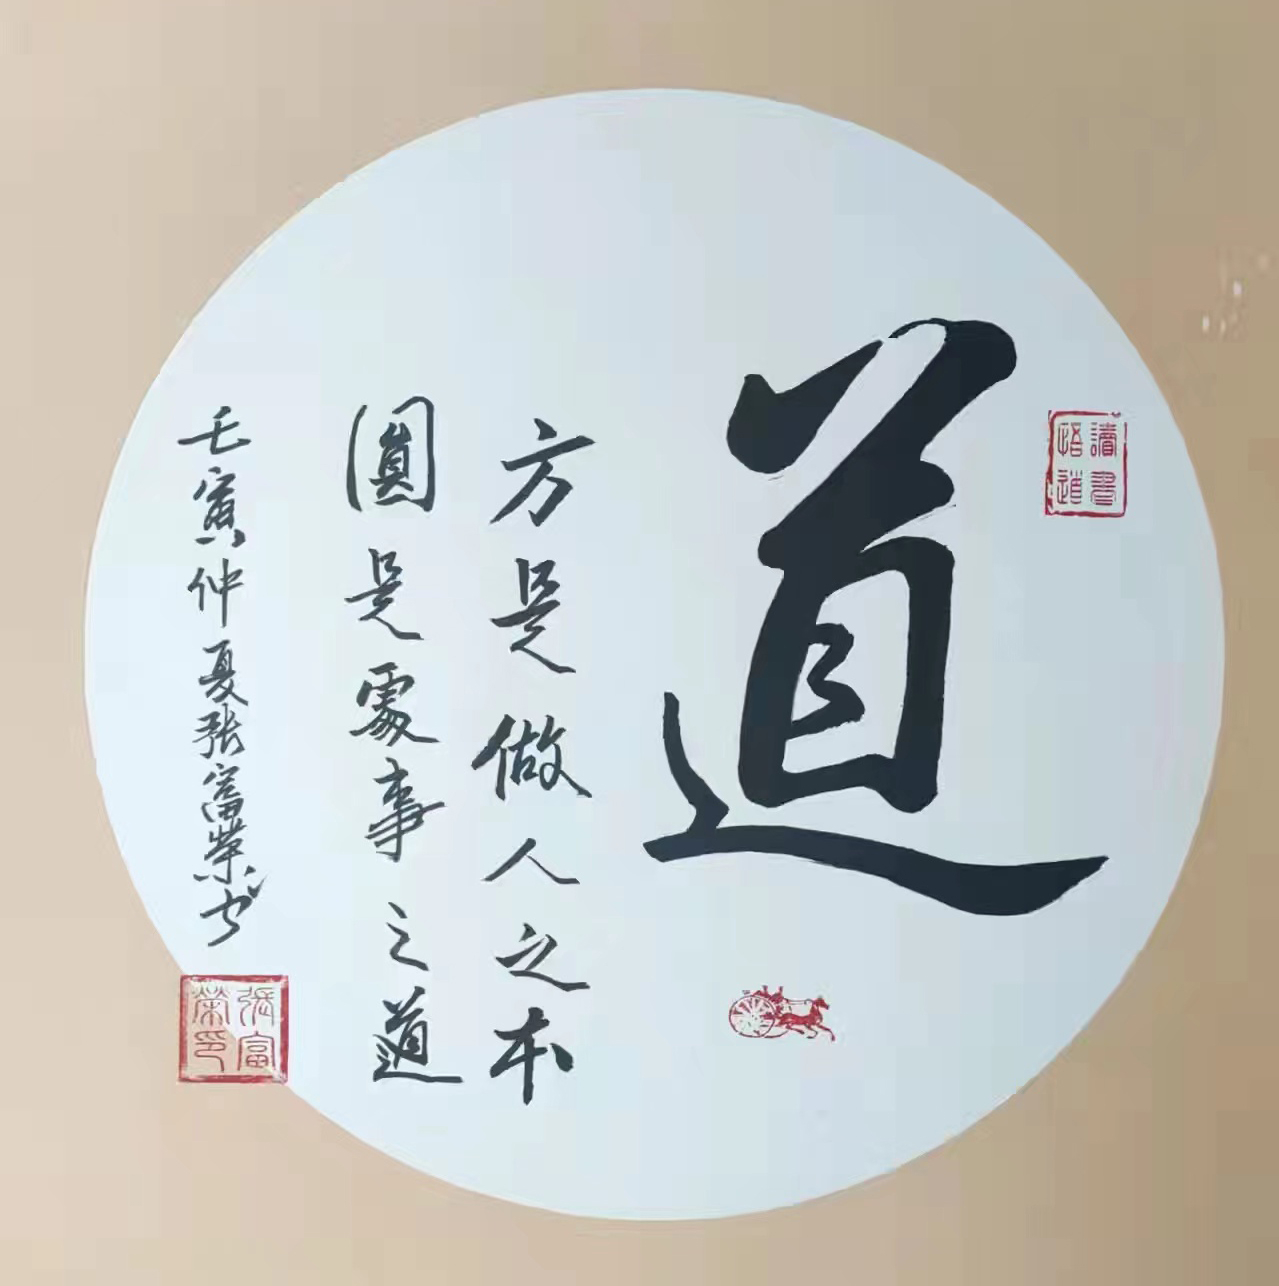 讀書
悟道
道
方是做人之本
圓是處事之道
壬寅仲夏張富榮書
張富
榮印